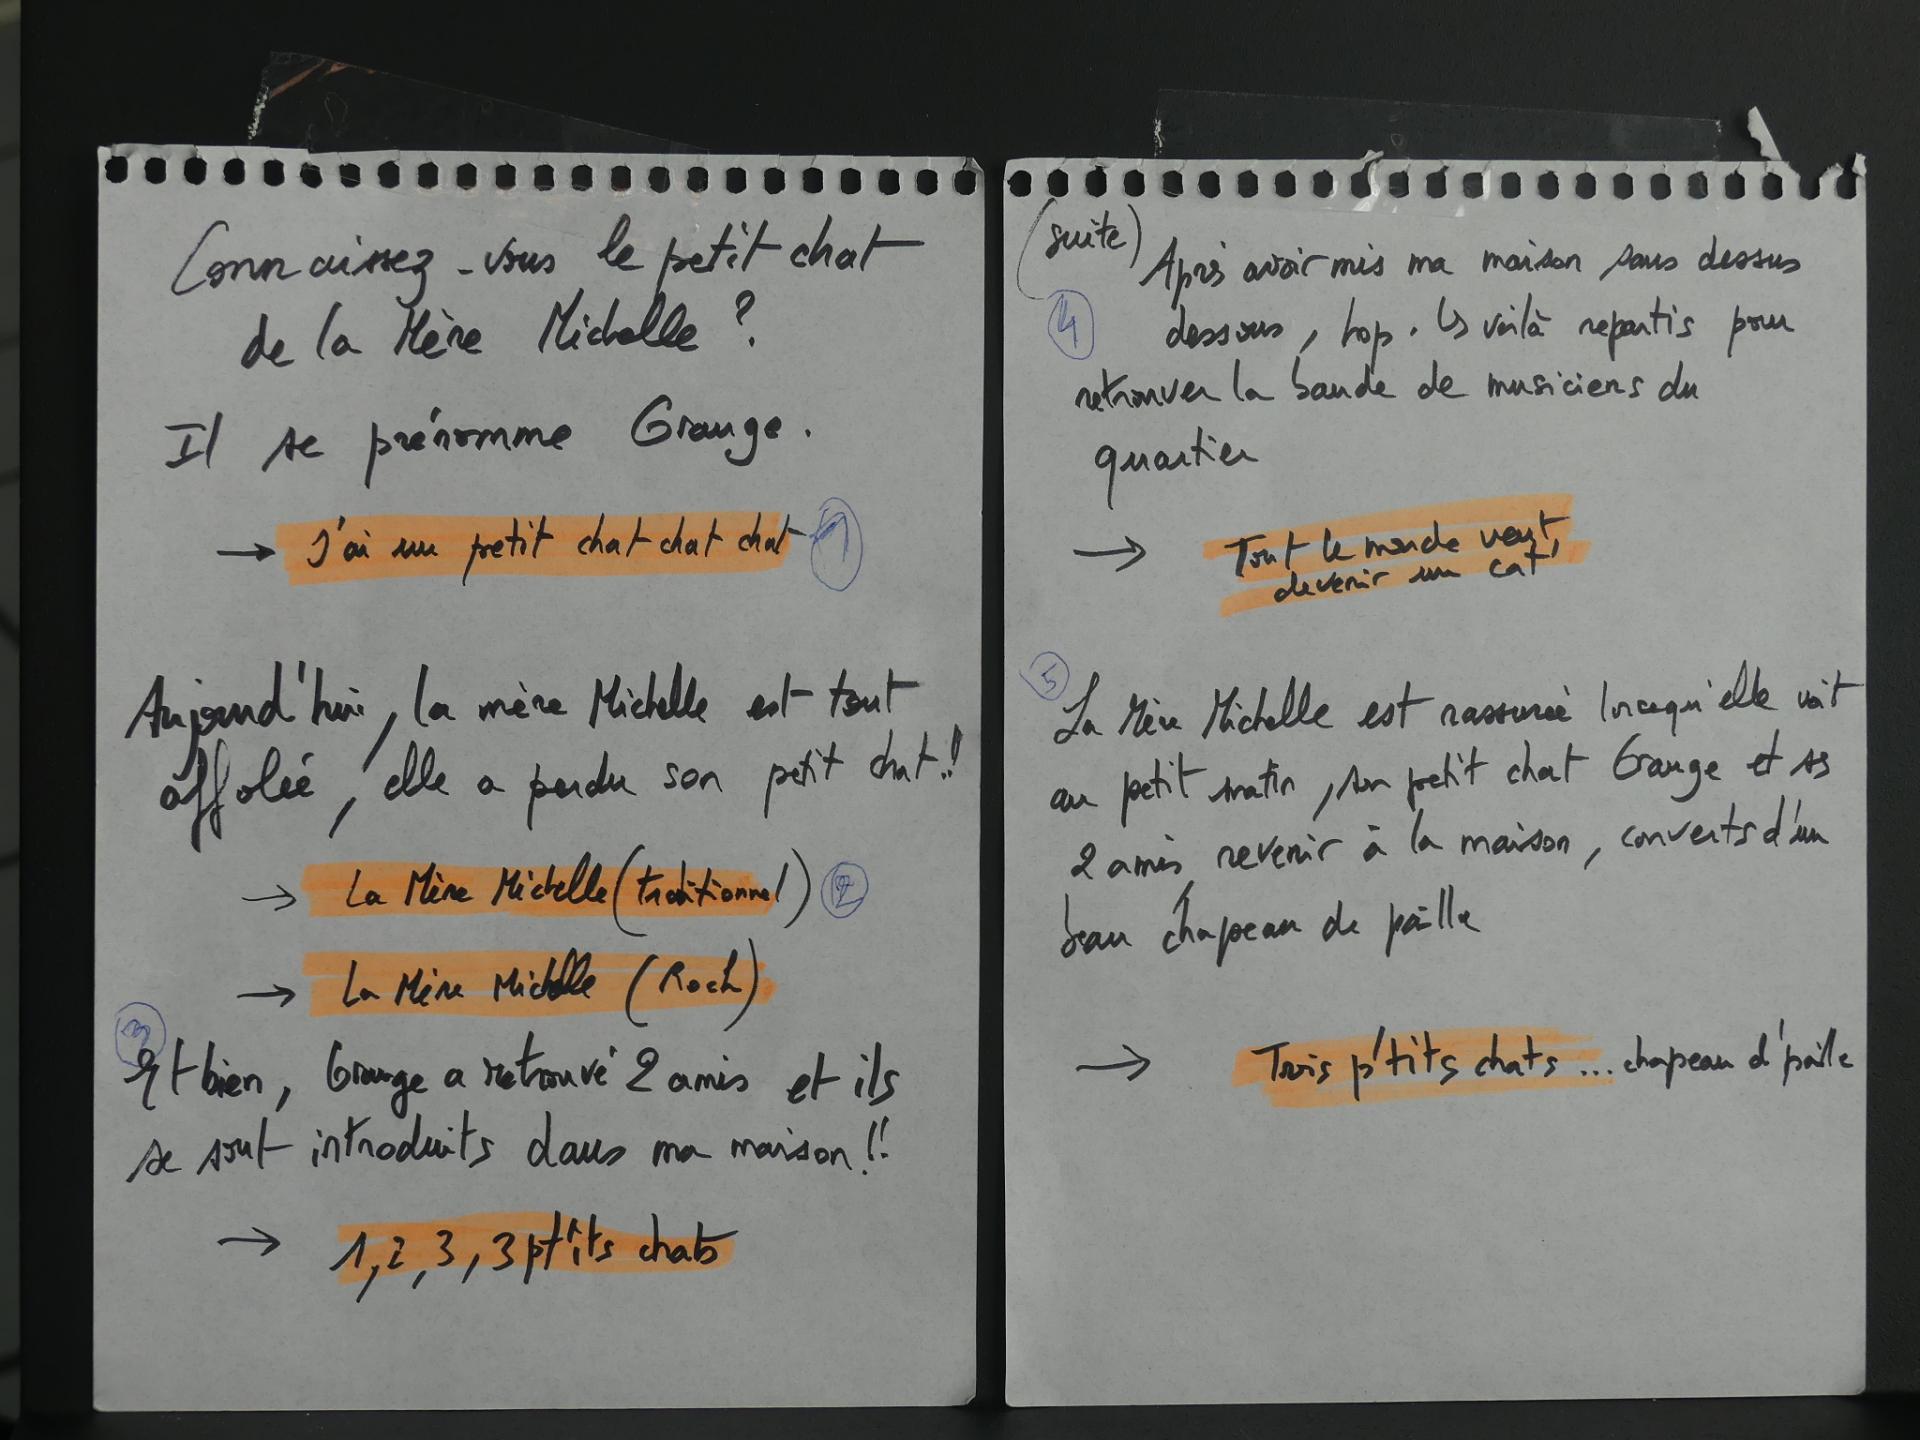 Connaissez-vous le petit chat
de la Mère Michelle ?
Il se prénomme Grange.
→ J'ai un petit chat chat chat 1
Aujourd'hui, la mère Michelle est tout
affolée, elle a perdu son petit chat !!
→ La Mère Michelle (traditionnel) 2
→ La Mère Michelle (Rock)
3
Et bien, Grange a retrouvé 2 amis et ils
se sont introduits dans ma maison !!
→ 1, 2, 3, 3 pt'its chats
(suite) Après avoir mis ma maison sans dessus
4 dessous, hop. Les voilà repartis pour
retrouver la bande de musiciens du
quartier
→ Tout le monde veut
devenir un cat
5
La Mère Michelle est rassurée lorsqu'elle voit
au petit matin, son petit chat Grange et ses
2 amis revenir à la maison, couverts d'un
beau chapeau de paille
→ Trois p'tits chats ... chapeau d'paille